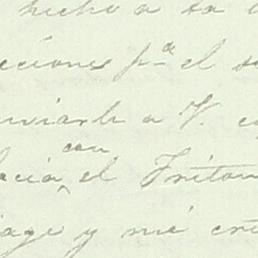 hecho a su
ciones pª el
enviarlo a V.
con
acia el Triton
iage y mi